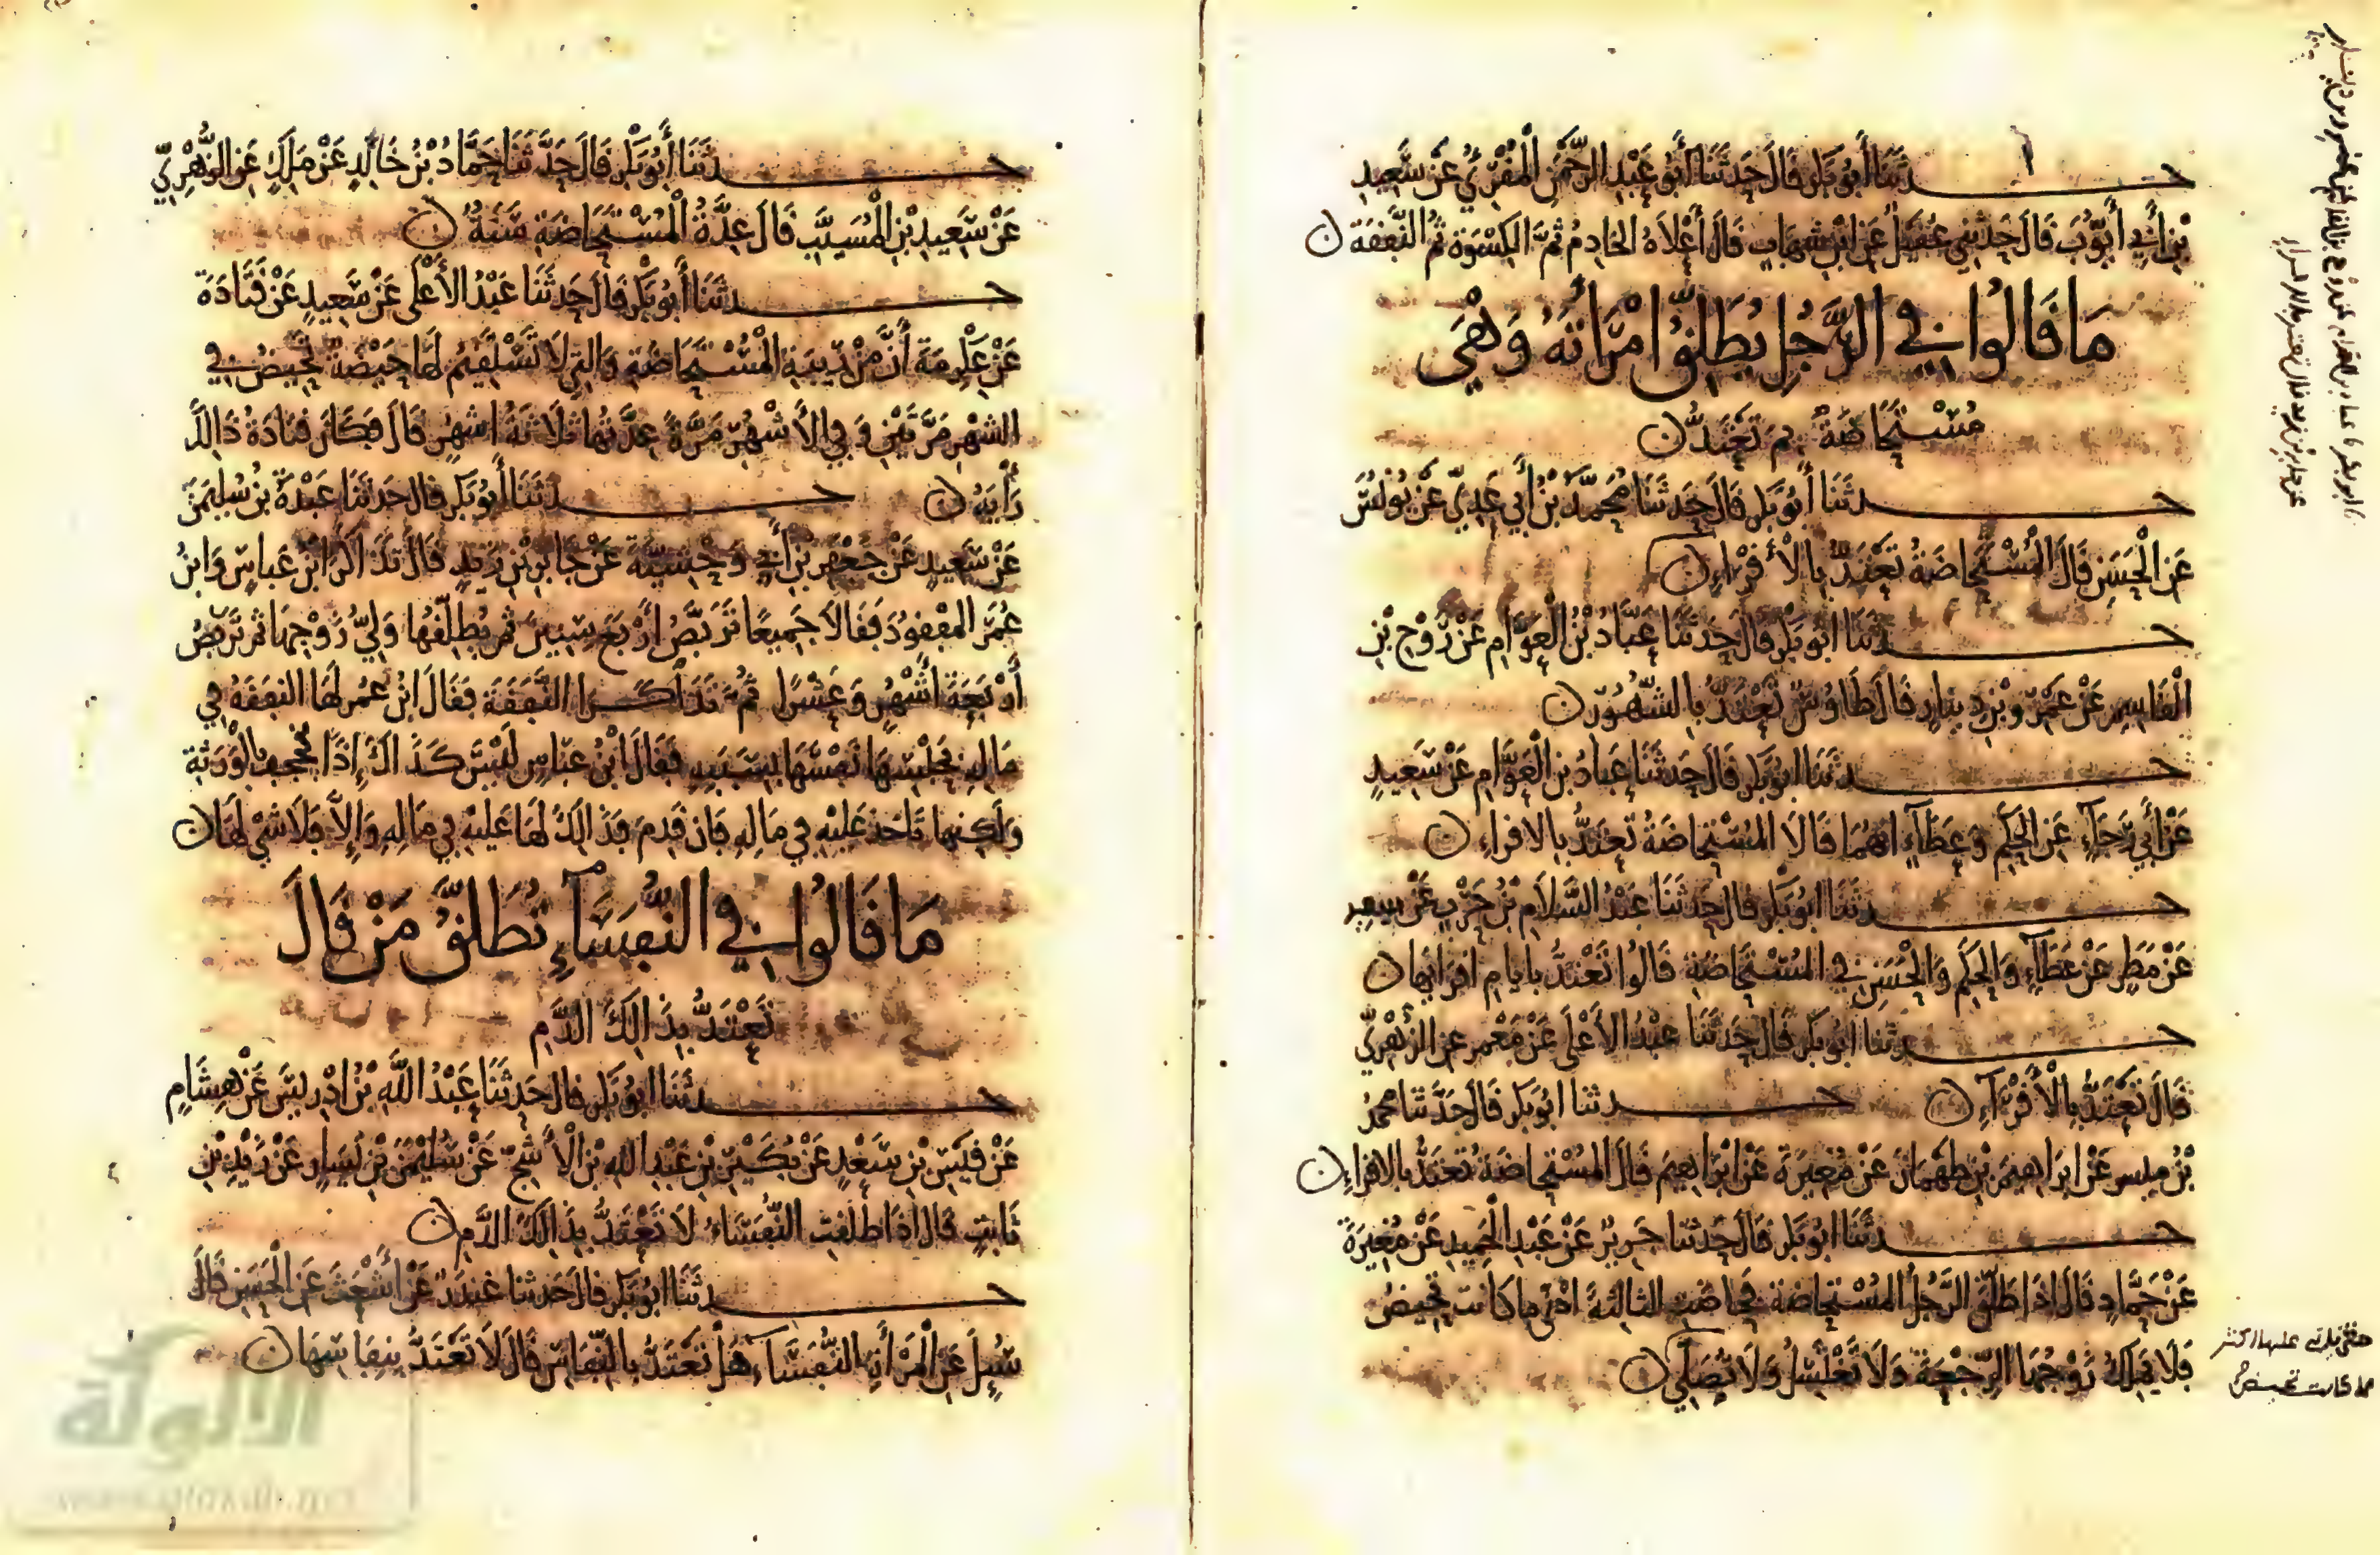 حدثنا أبو بكر قال حدثنا أبو عبد الرحمن المقري عن سعيد
بن أبي أيوب قال حدثني عقيل عن ابن شهاب قال أعلاه الخادم ثم الكسوة ثم النفقة ن
ما قالوا في الرجل يطلق امرأته وهي
مستحاضة بم تعتد ن
حدثنا أبو بكر قال حدثنا محمد بن أبي عدي عن يونس
عن الحسن قال المستحاضة تعتد بالأقراء ن
حدثنا ابو بكر قال حدثنا عباد بن العوام عن روح بن
القاسم عن عمرو بن دينار قال طاوس تعتد بالشهور ن
حدثنا ابو بكر قال حدثنا عباد بن العوام عن سعيد
عن أبي عن الحكم وعطاء انهما قالا المستحاضة تعتد بالاقراء ن
حدثنا ابو بكر قال حدثنا عبد السلام بن حرب عن سعيد
عن مطر عن عطاء والحكم والحسن في المستحاضة قالوا تعتد بايام اقرائها ن
حدثنا ابو بكر قال حدثنا عبد الأعلى عن معمر عن الزهري
قال تعتد بالأقراء ن حدثنا ابو بكر قال حدثنا محمد
بن ميسر عن ابراهيم بن طهمان عن مغيرة عن ابراهيم قال المستحاضة تعتد بالاقراء ن
حدثنا ابو بكر قال حدثنا جرير عن عبد الحميد عن مغيرة
عن حماد قال اذا طلق الرجل المستحاضة فحاضت الثالثة ادنى ما كانت تحيض
فلا يملك زوجها الرجعة ولا تغتسل ولا تصلي ن
حتى ياتي عليها اكثر
ما كانت تحيض
حدثنا أبو بكر قال حدثنا حماد بن خالد عن ملك عن الزهري
عن سعيد بن المسيب قال عدة المستحاضة سنة ن
حدثنا أبو بكر قال حدثنا عبد الأعلى عن سعيد عن قتادة
عن عكرمة أن من ريبة المستحاضة والتي لا تستقيم لها حيضة تحيض في
الشهر مرتين وفي الأشهر مرة عدتها ثلاثة اشهر قال فكان قتادة ذالك
رأيه ن حدثنا أبو بكر قال حدثنا عبدة بن سليمن
عن سعيد عن جعفر بن أبي وحشية عن جابر بن زيد قال تذاكر ابن عباس وابن
عمر المفقود فقالا جميعا تربص أربع سنين ثم يطلقها ولي زوجها ثم تربص
أربعة أشهر وعشرا ثم تذاكرا النفقة فقال ابن عمر لها النفقة في
ماله بحبسها نفسها بسببه فقال ابن عباس ليس كذالك إذا بالورثة
ولكنها تاخذ عليه في ماله فان قدم فذالك لها عليه في ماله وإلا فلا شي لها ن
ما قالوا في النفساء تطلق من قال
تعتد بذالك الدم
حدثنا ابو بكر قال حدثنا عبد الله بن ادريس عن هشام
عن قيس بن سعد عن بكير بن عبد الله بن الأشج عن سليمن بن يسار عن زيد بن
ثابت قال اذا طلقت النفساء لا تعتد بذالك الدم ن
حدثنا ابو بكر قال حدثنا غندر عن أشعث عن الحسن قال
سئل عن المرأة النفساء هل تعتد بالنفاس قال لا تعتد بنفاسها ن
الألوكة
www.alukah.net